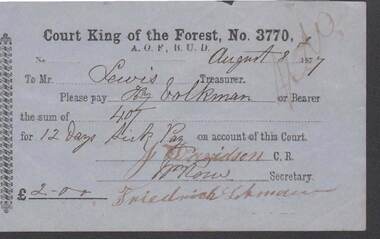 Court King of the Forest, No. 3770,
A. O. F., B. U. D.
No August 8 1877
To Mr. Lewis Treasurer.
Please pay Hy Volkman or Bearer
the sum of 40/
for 12 Days Sick Pay on account of this Court.
J Davidson C. R.
Wm Rowe Secretary.
£ 2-0-0 Friedrich